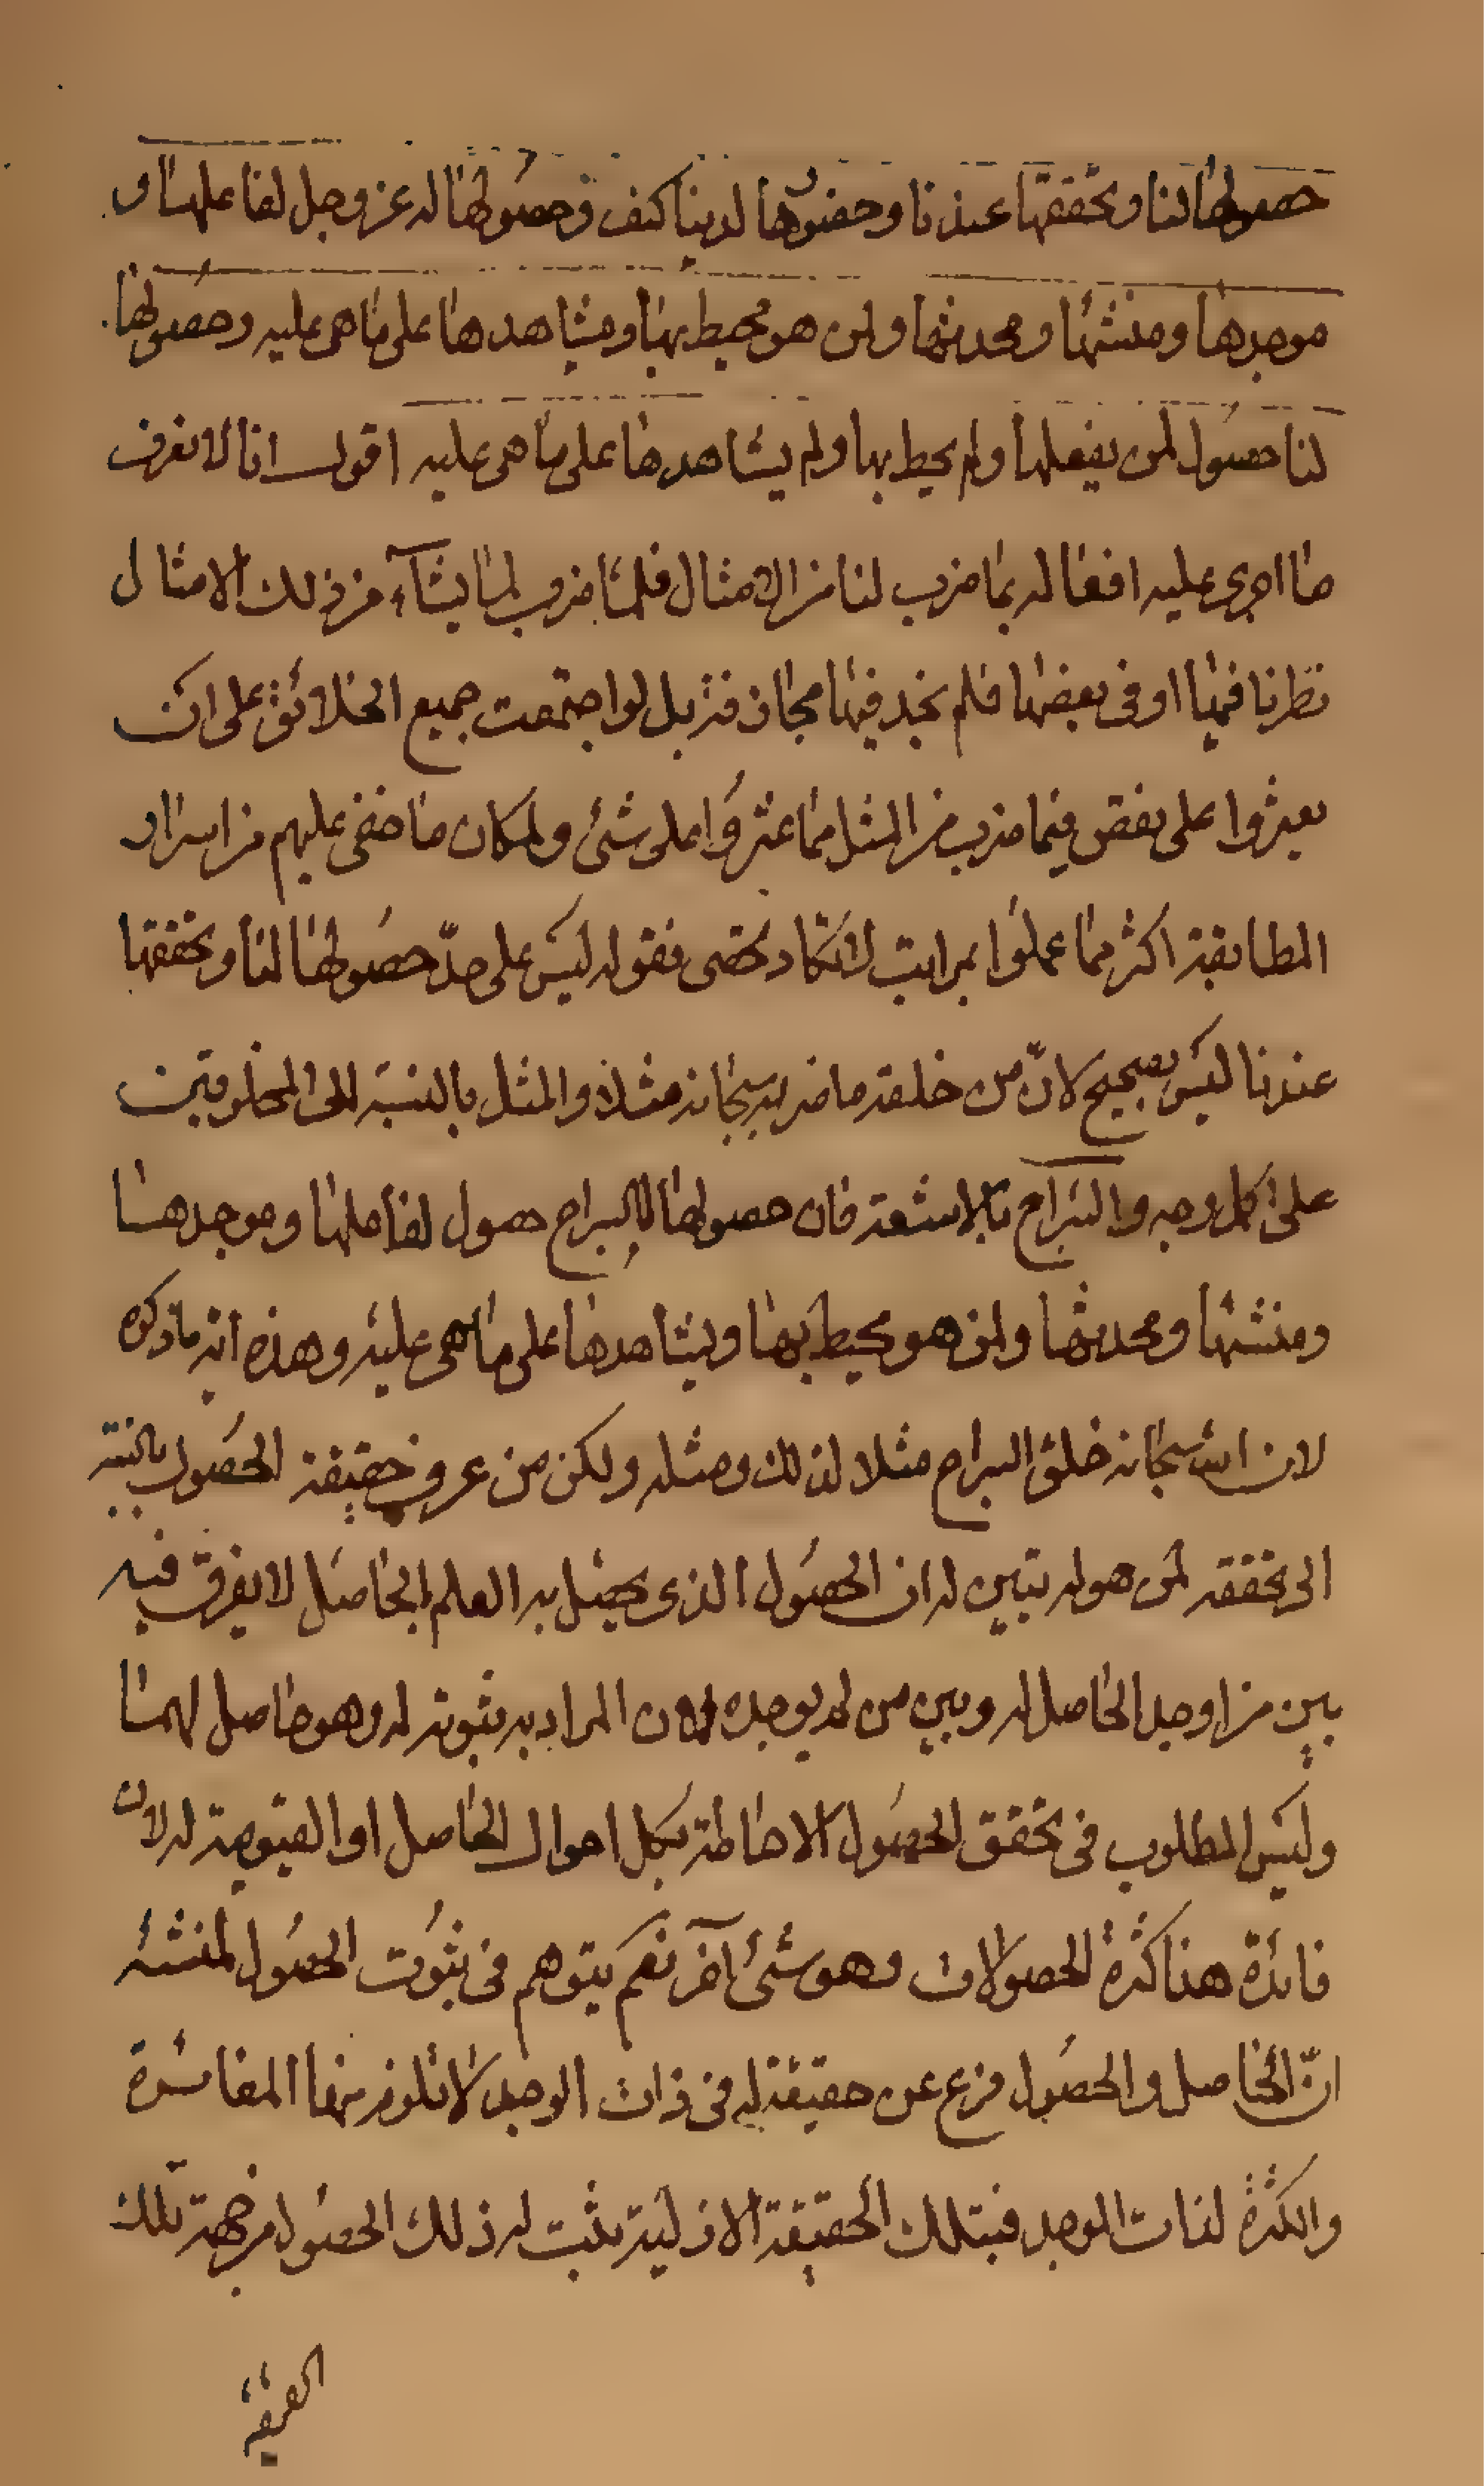 حصولها لنا وتحققها عندنا وحضورها لدينا كيف وحصولها له عز وجل لفاعلها و
موجدها ومنشئها ومحدثها ولمن هو محيط بها ومشاهدها على ما هى عليه وحصولها
لنا حصول لمن يفعلها ولم يحط بها ولم يشاهدها على ما هى عليه اقول انا لا نعرف
ما اجرى عليه افعاله بما ضرب لنا من الامثال فلما ضرب لما يشآء من ذلك الامثال
نظرنا فيها او فى بعضها فلم نجد فيها مجازفة بل لو اجتمعت جميع الخلائق على ان
يعثروا على نقص فيما ضرب من المثل مما عثروا على شئ ولمكان ما خفى عليهم من اسرار
المطابقة اكثر مما عملوا بمراتب لا تكاد تحصى فقوله ليس على حدّ حصولها لنا وتحققها
عندنا ليس بصحيح لانّ من خلقه ما ضربه سبحانه مثلا والمثل بالنسبة الى المخلوقين
على اكمل وجه والسراج بالاشعة فان حصولها للسراج حصول لفاعلها وموجدها
ومنشئها ومحدثها ولمن هو يحيط بها ويشاهدها على ما هى عليه وهذه انه ما ذكره
لان الله سبحانه خلق السراج مثلا لذلك ومثله ولكن من عرف حقيقة الحصول بالنسبة
الى تحققه لمن هو له تبين له ان الحصول الذى يحصل به العلم بالحاصل لا يفرق فيه
بين من اوجد الحاصل له وبين من لم يوجده لان المراد به ثبوته له وهو حاصل لهما
وليس المطلوب فى تحقق الحصول الاحاطة بكل احوال الحاصل او القيومية له لان
فائدة هنا كثرة الحصولات وهو شئ آخر نعم يتوهم فى ثبوت الحصول لمنشئه
انّ الحاصل والحصول فرع عن حقيقة له فى ذات الموجد لا تلزم منها المغايرة
والكثرة لذات الموجد فبتلك الحقيقة الازلية يثبت له ذلك الحصول من جهة تلك